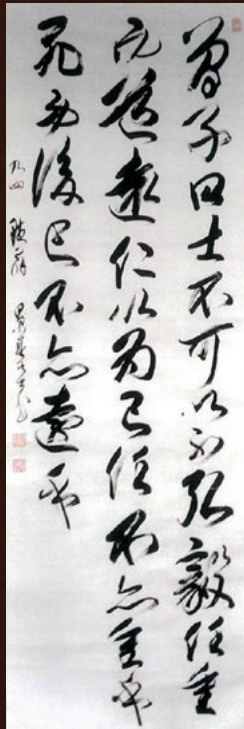 曾子曰士不可以不弘毅任重
而道遠仁以為己任不亦重乎
死而後已不亦遠乎
九四